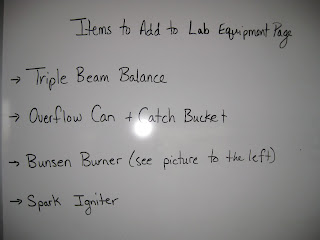 Items to Add to Lab Equipment Page
→ Triple Beam Balance
→ Overflow Can + Catch Bucket
→ Bunsen Burner (see picture to the left)
→ Spark Igniter